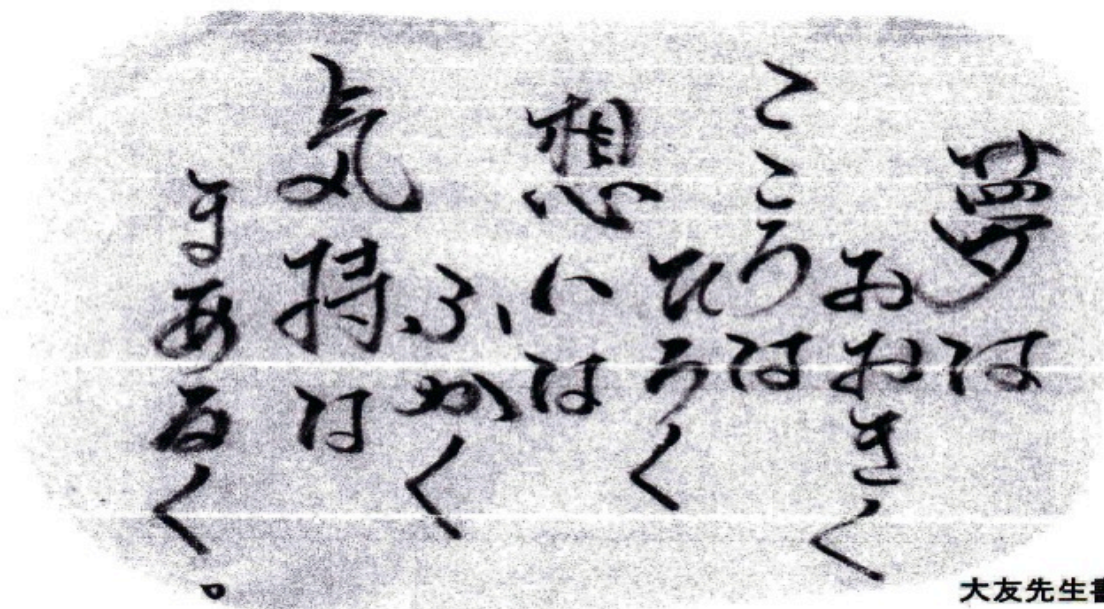 夢は
おおきく
こころは
ひろく
想いは
ふかく
気持は
まあるく。
大友先生書